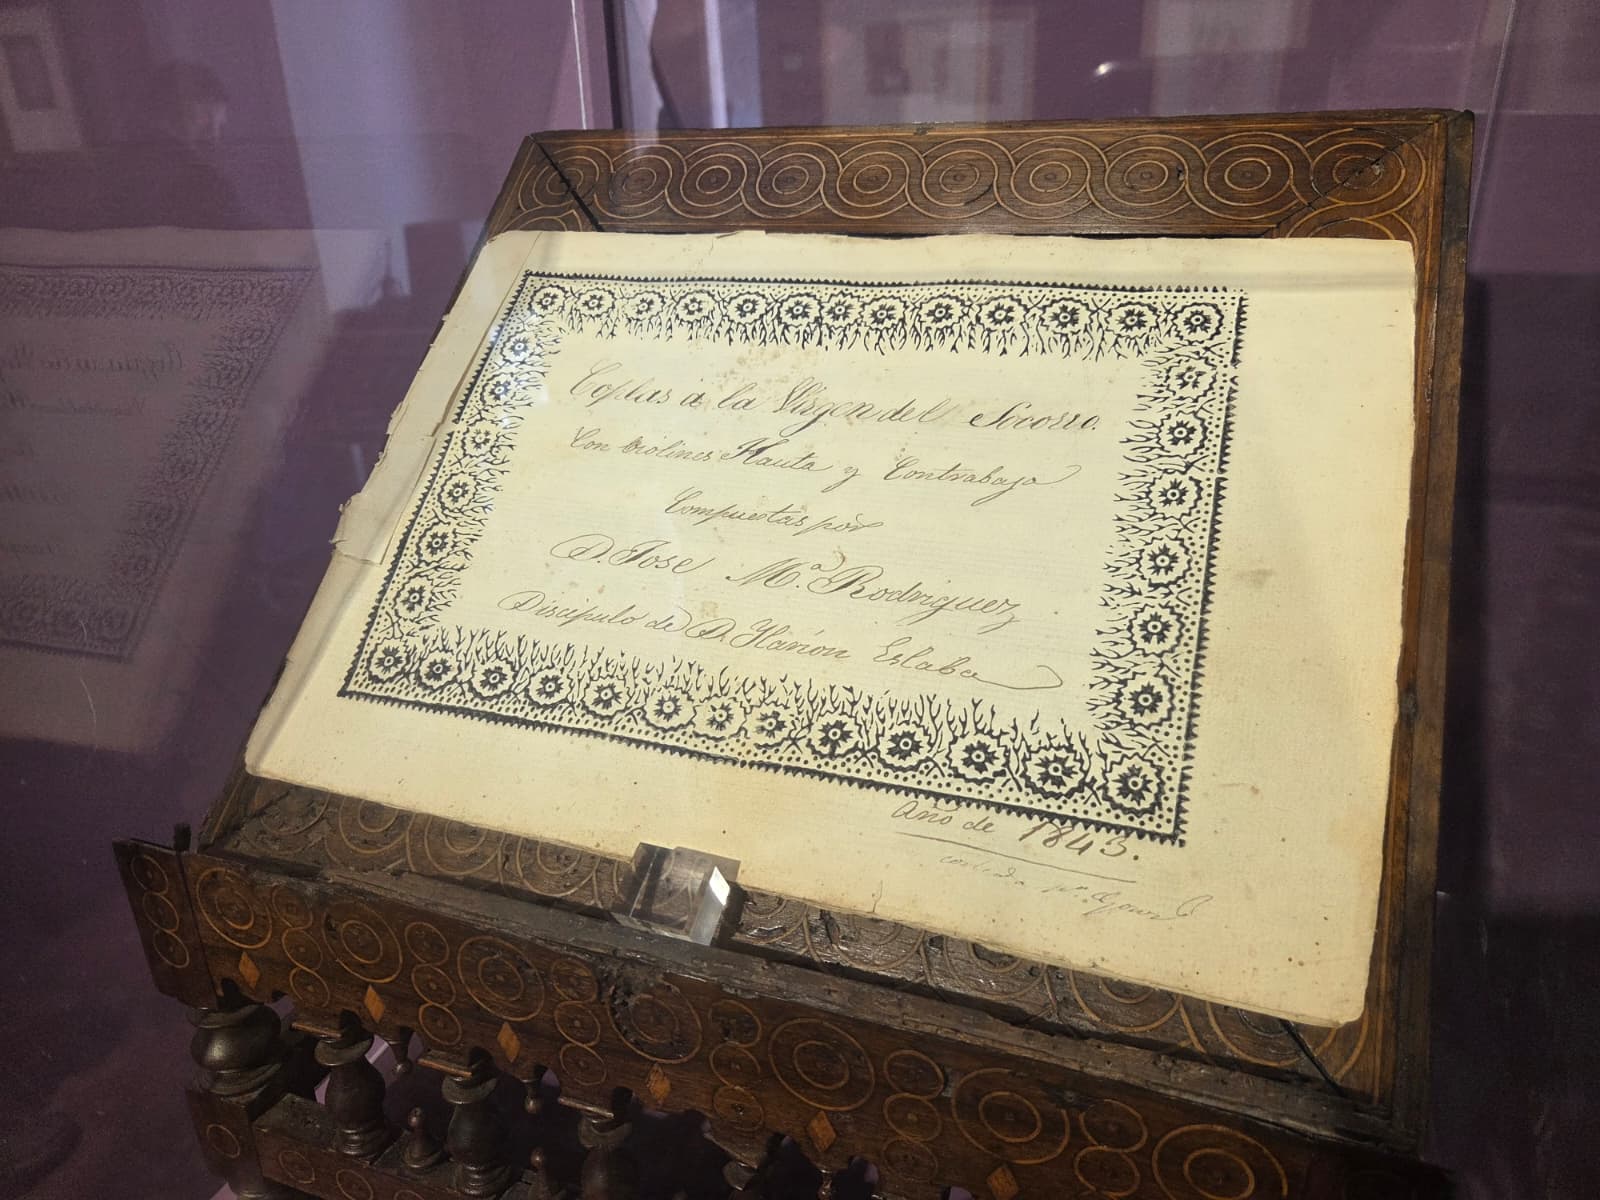 Coplas á la Virgen del Socorro.
Con Violines Flauta y Contrabajo
Compuestas por
D. Jose Mª Rodriguez
Discipulo de D. Ylarion Eslaba
Año de 1843.